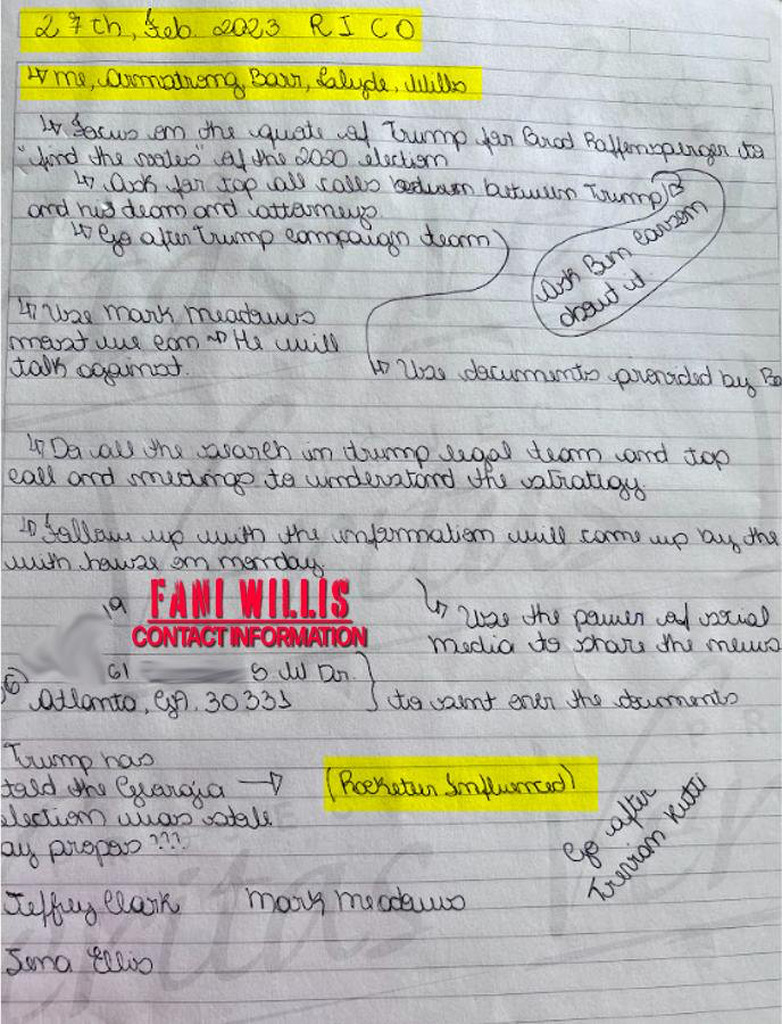 27th, Feb 2023 RICO
↳ me, Armstrong, Barr, Calyde, Wills
↳ Focus on the quote of Trump for Brad Raffensperger to
"find the votes" of the 2020 election
↳ Ask for top all calls between Trump
and his team and attorneys
↳ Go after Trump campaign team
Ask Ben
about it
↳ Use Mark Meadows
most we can → He will
talk against.
↳ Use documents provided by
↳ Do all the search in trump legal team and top
call and meetings to understand the strategy.
↳ Follow up with the information will come up by the
with house on monday
19
FANI WILLIS
CONTACT INFORMATION
↳ Use the power of social
media to share the news
61 S W Dr.
Atlanta, GA. 30331
to sent over the documents
Trump has
told the Georgia →
election was stole
ay propos ???
(Rocketeur Influenced)
Go after
Trevian Kutti
Jeffrey Clark Mark Meadows
Jena Ellis